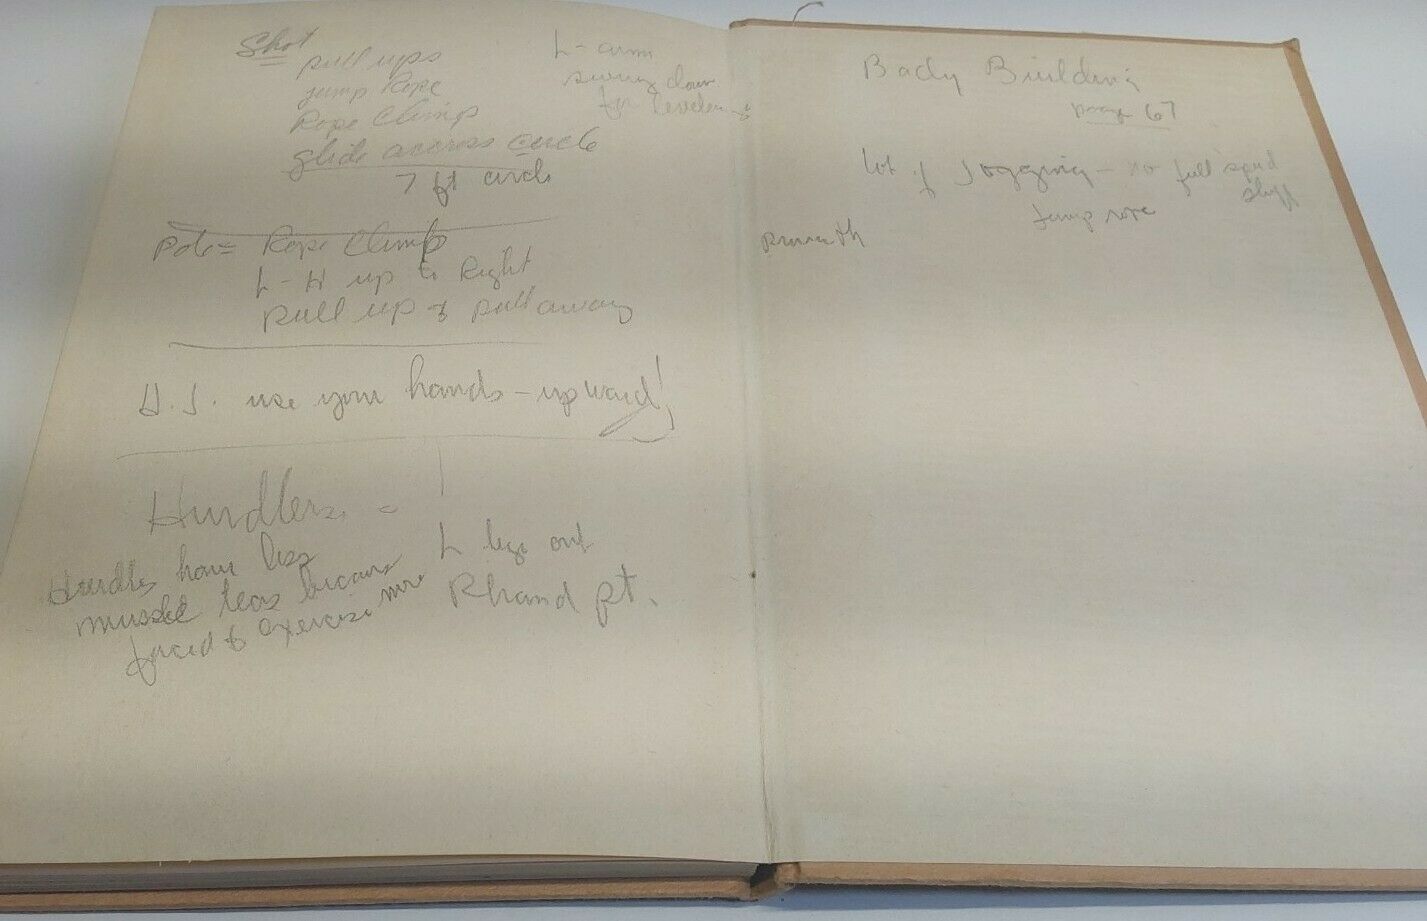 Shot
pull ups
jump Rope
Rope Climp
glide across circle
7 ft circle
L- arm
swing down
for
Pole = Rope Climp
L-H up to Right
pull up & pull away
H.J. use your hands - upward!
Hurdlers =
Hurdles have less
mussel tears because
forced to exercise more
L leg out
R hand pt.
Body Building
page 67
Lot of Jogging - no full speed
stuff
Jump rope